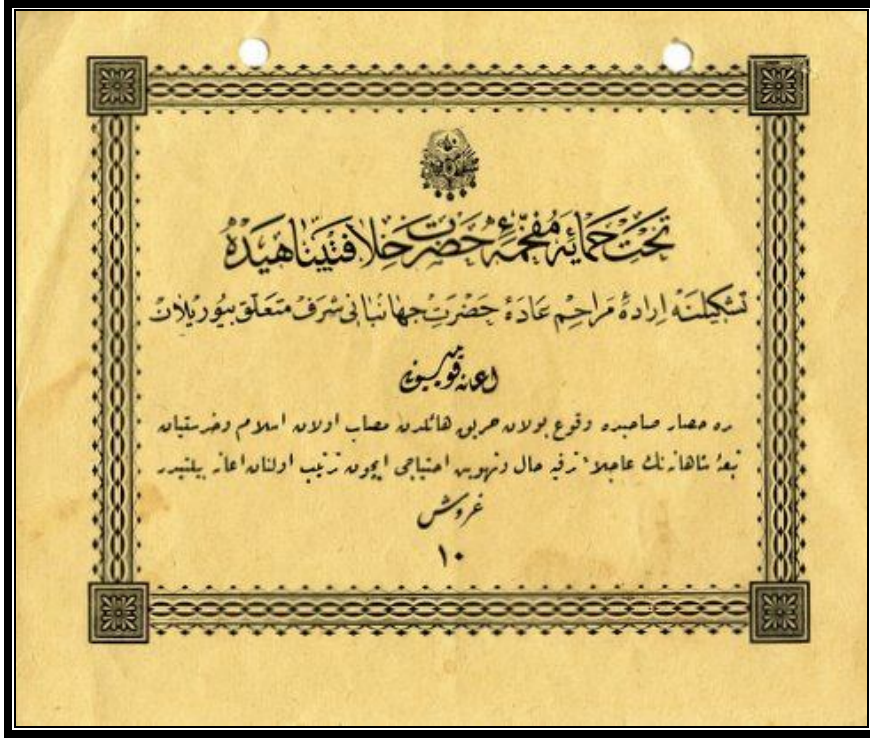 تحت حمایۀ مفخمۀ حضرت خلافتپناهیده
تشکیلنه ارادۀ مراحم عادۀ حضرت جهانبانی شرف متعلق بیوریلان
اعانه قومیسیونی
ره حصار صاحبده وقوع بولان حریق هائلدن مصاب اولان اسلام وخرستیان
تبعۀ شاهانه نك عاجلاً ترفیه حال وتهوین احتیاجی ایچون ترتیب اولنان اعانه بیلتیدر
غروش
١٠